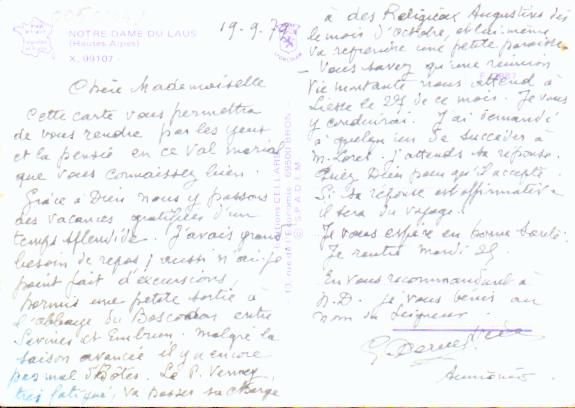 NOTRE DAME DU LAUS
(Hautes-Alpes)
X. 09107 -
19.9.79
Chère Mademoiselle
Cette carte vous permettra
de vous rendre par les yeux
et la pensée en ce Val marial
que vous connaissez bien.
Grâce à Dieu nous y passons
des vacances gratifiées d'un
temps splendide. J'avais grand
besoin de repos; aussi n'ai-je
point fait d'excursions
hormis une petite sortie à
l'abbaye du Boscodon entre
Savines et Embrun. Malgré la
saison avancée il y a encore
pas mal d'hôtes. Le P.
très fatigué, va passer sa charge
Editions CELLARD 69500 BRON
©S.P.A.D.E.M
à des Religieux Augustins dès
le mois d'octobre, et lui-même
va reprendre une petite paroisse
- Vous savez qu'une réunion
Vie montante nous attend à
Liesse le 25 de ce mois. Je vous
y conduirai. J'ai demandé
à quelqu'un de succéder à
M. j'attends sa réponse.
Priez Dieu pour qu'il accepte.
Si sa réponse est affirmative
il sera du voyage.
Je vous espère en bonne santé.
Je rentre mardi 25
En vous recommandant à
N.D. je vous bénis au
nom du Seigneur.